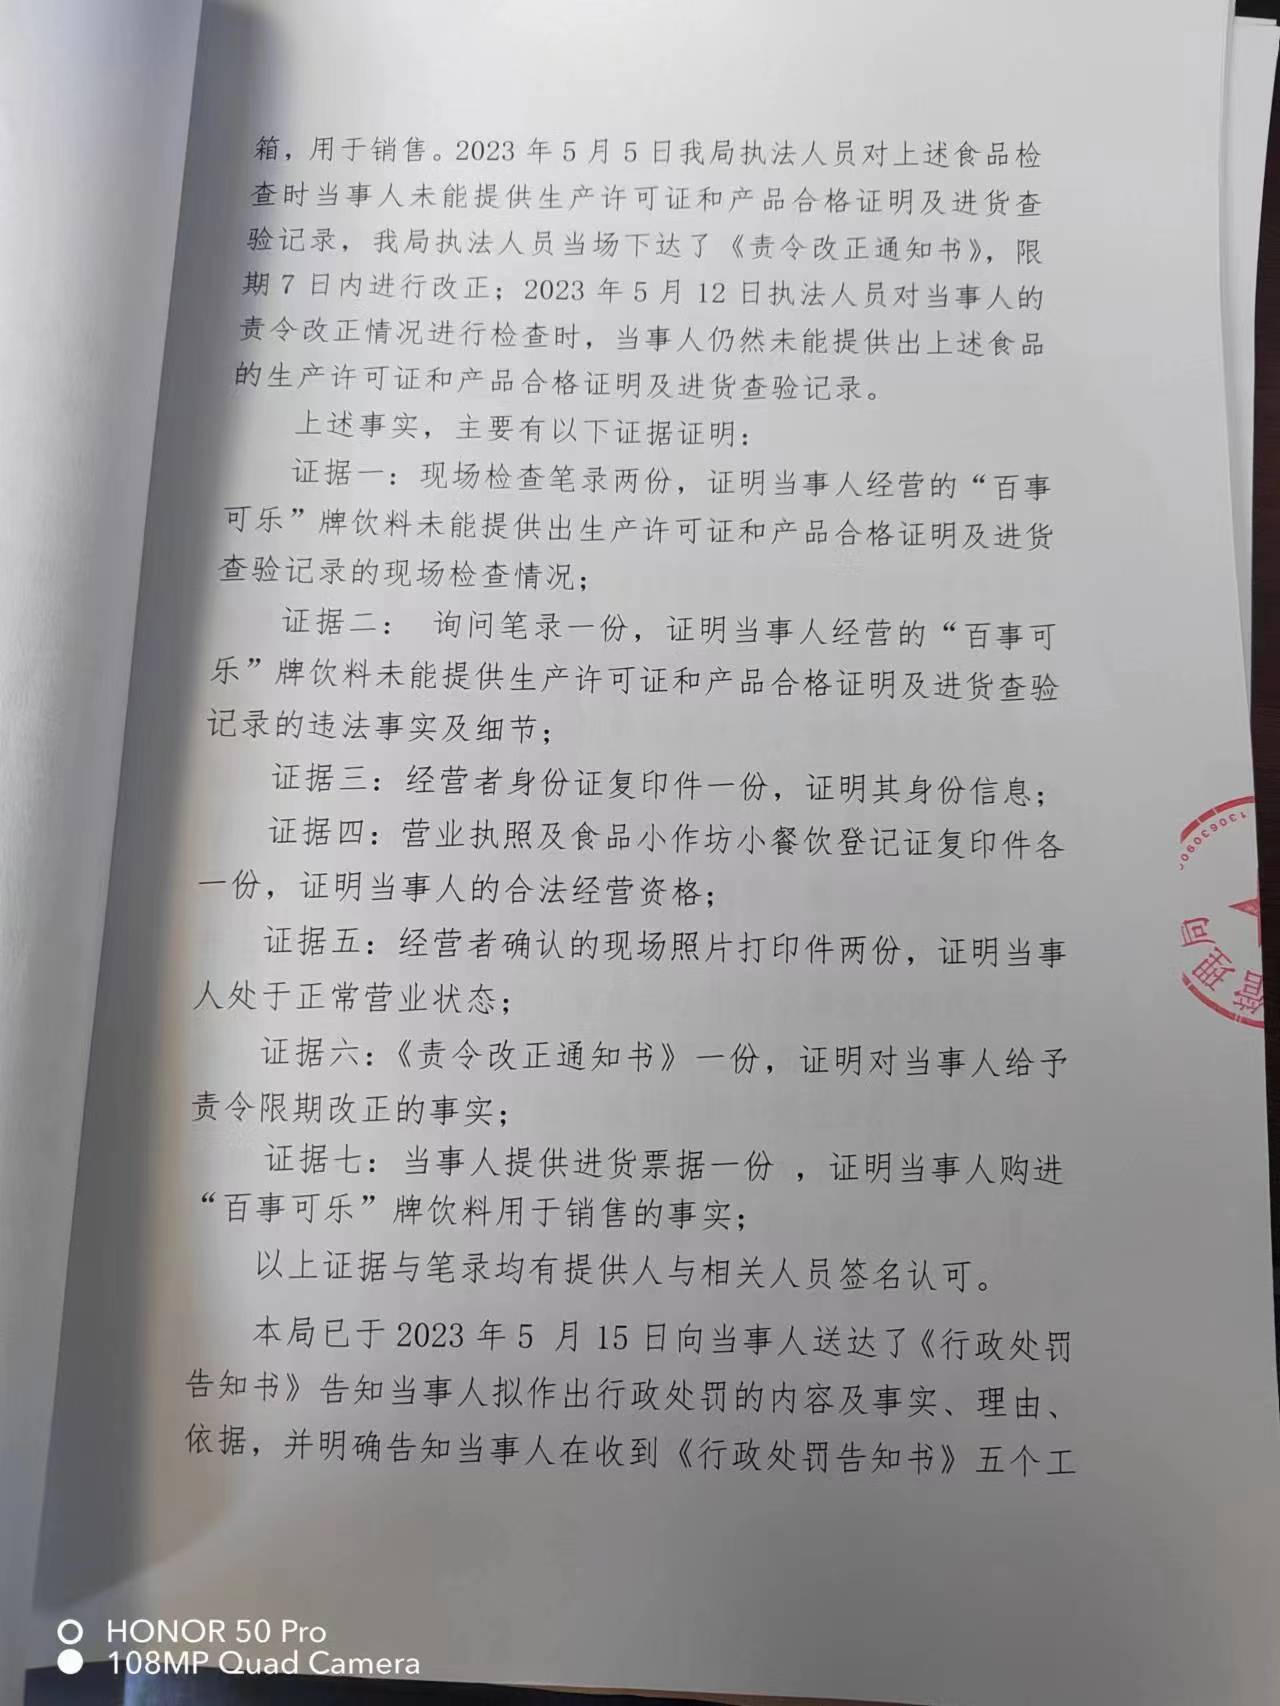 箱，用于销售。2023年5月5日我局执法人员对上述食品检
查时当事人未能提供生产许可证和产品合格证明及进货查
验记录，我局执法人员当场下达了《责令改正通知书》，限
期7日内进行改正；2023年5月12日执法人员对当事人的
责令改正情况进行检查时，当事人仍然未能提供出上述食品
的生产许可证和产品合格证明及进货查验记录。
上述事实，主要有以下证据证明：
证据一：现场检查笔录两份，证明当事人经营的“百事
可乐”牌饮料未能提供出生产许可证和产品合格证明及进货
查验记录的现场检查情况；
证据二： 询问笔录一份，证明当事人经营的“百事可
乐”牌饮料未能提供生产许可证和产品合格证明及进货查验
记录的违法事实及细节；
证据三：经营者身份证复印件一份，证明其身份信息；
证据四：营业执照及食品小作坊小餐饮登记证复印件各
一份，证明当事人的合法经营资格；
证据五：经营者确认的现场照片打印件两份，证明当事
人处于正常营业状态；
证据六：《责令改正通知书》一份，证明对当事人给予
责令限期改正的事实；
证据七：当事人提供进货票据一份 ，证明当事人购进
“百事可乐”牌饮料用于销售的事实；
以上证据与笔录均有提供人与相关人员签名认可。
本局已于2023年5 月15日向当事人送达了《行政处罚
告知书》告知当事人拟作出行政处罚的内容及事实、理由、
依据，并明确告知当事人在收到《行政处罚告知书》五个工
管理局
13063090
HONOR 50 Pro
108MP Quad Camera